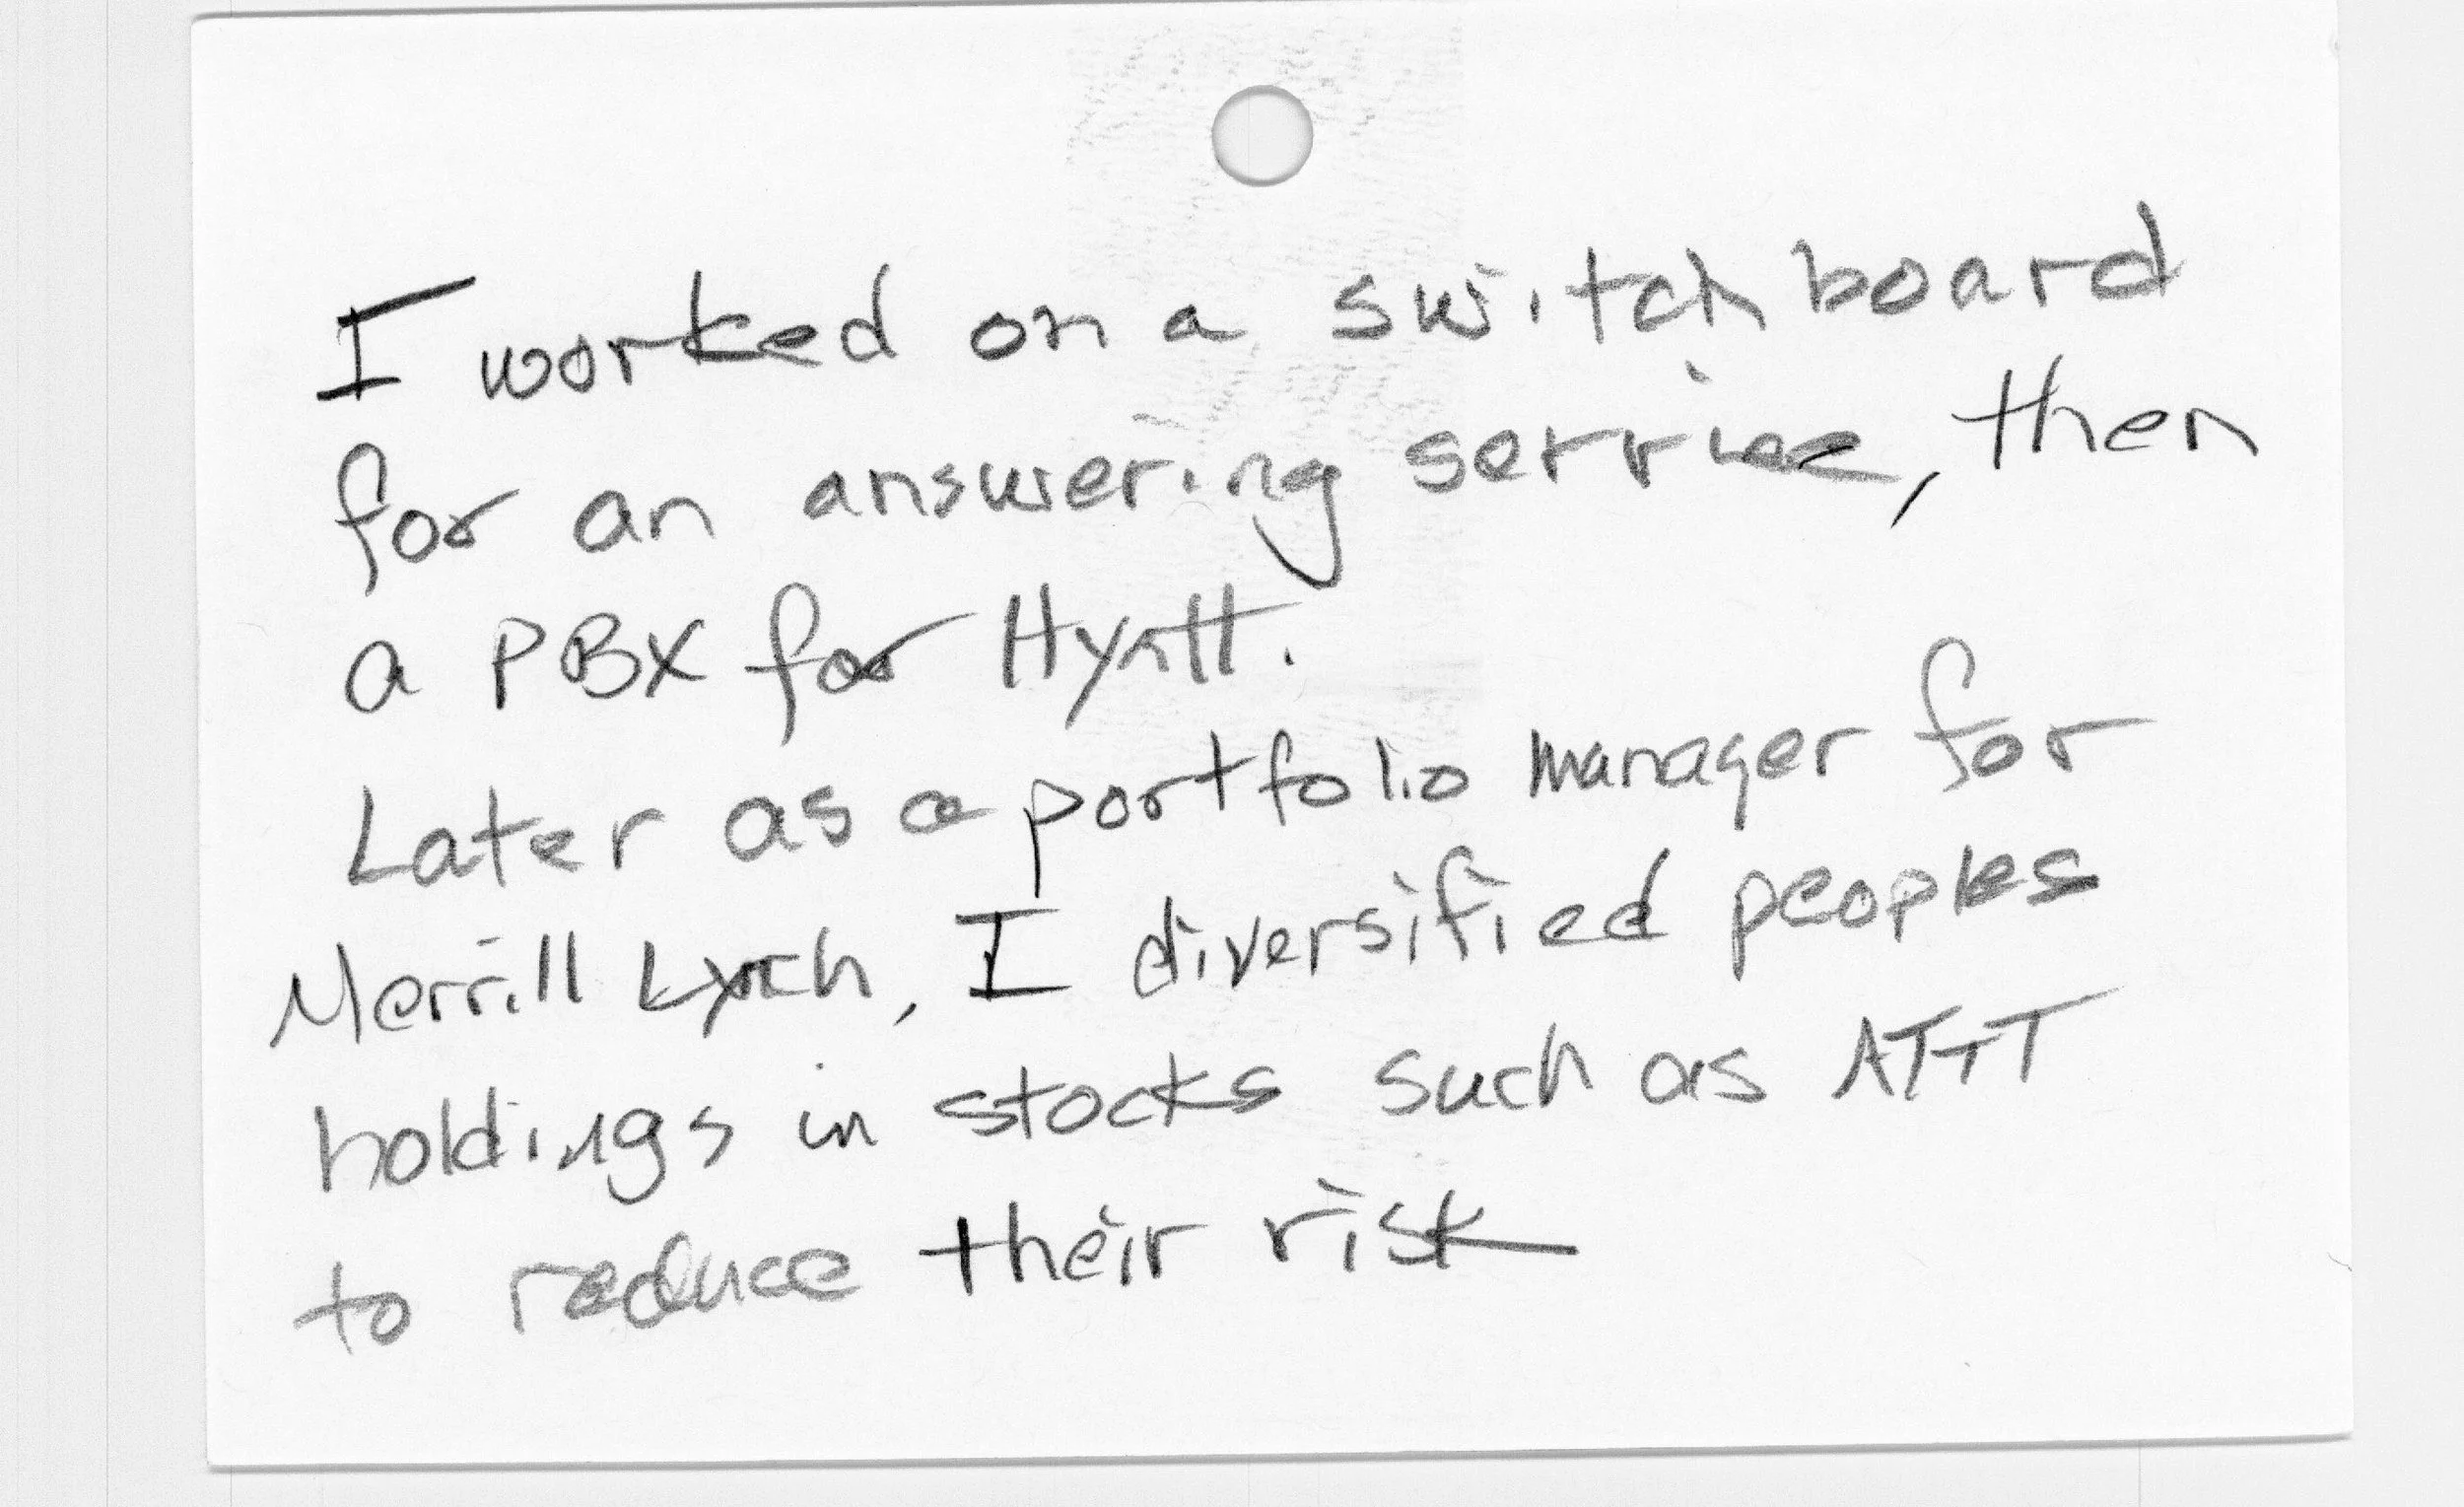 I worked on a switch board
for an answering service, then
a PBX for Hyatt.
Later as a portfolio manager for
Merrill Lynch, I diversified peoples
holdings in stocks such as AT+T
to reduce their risk